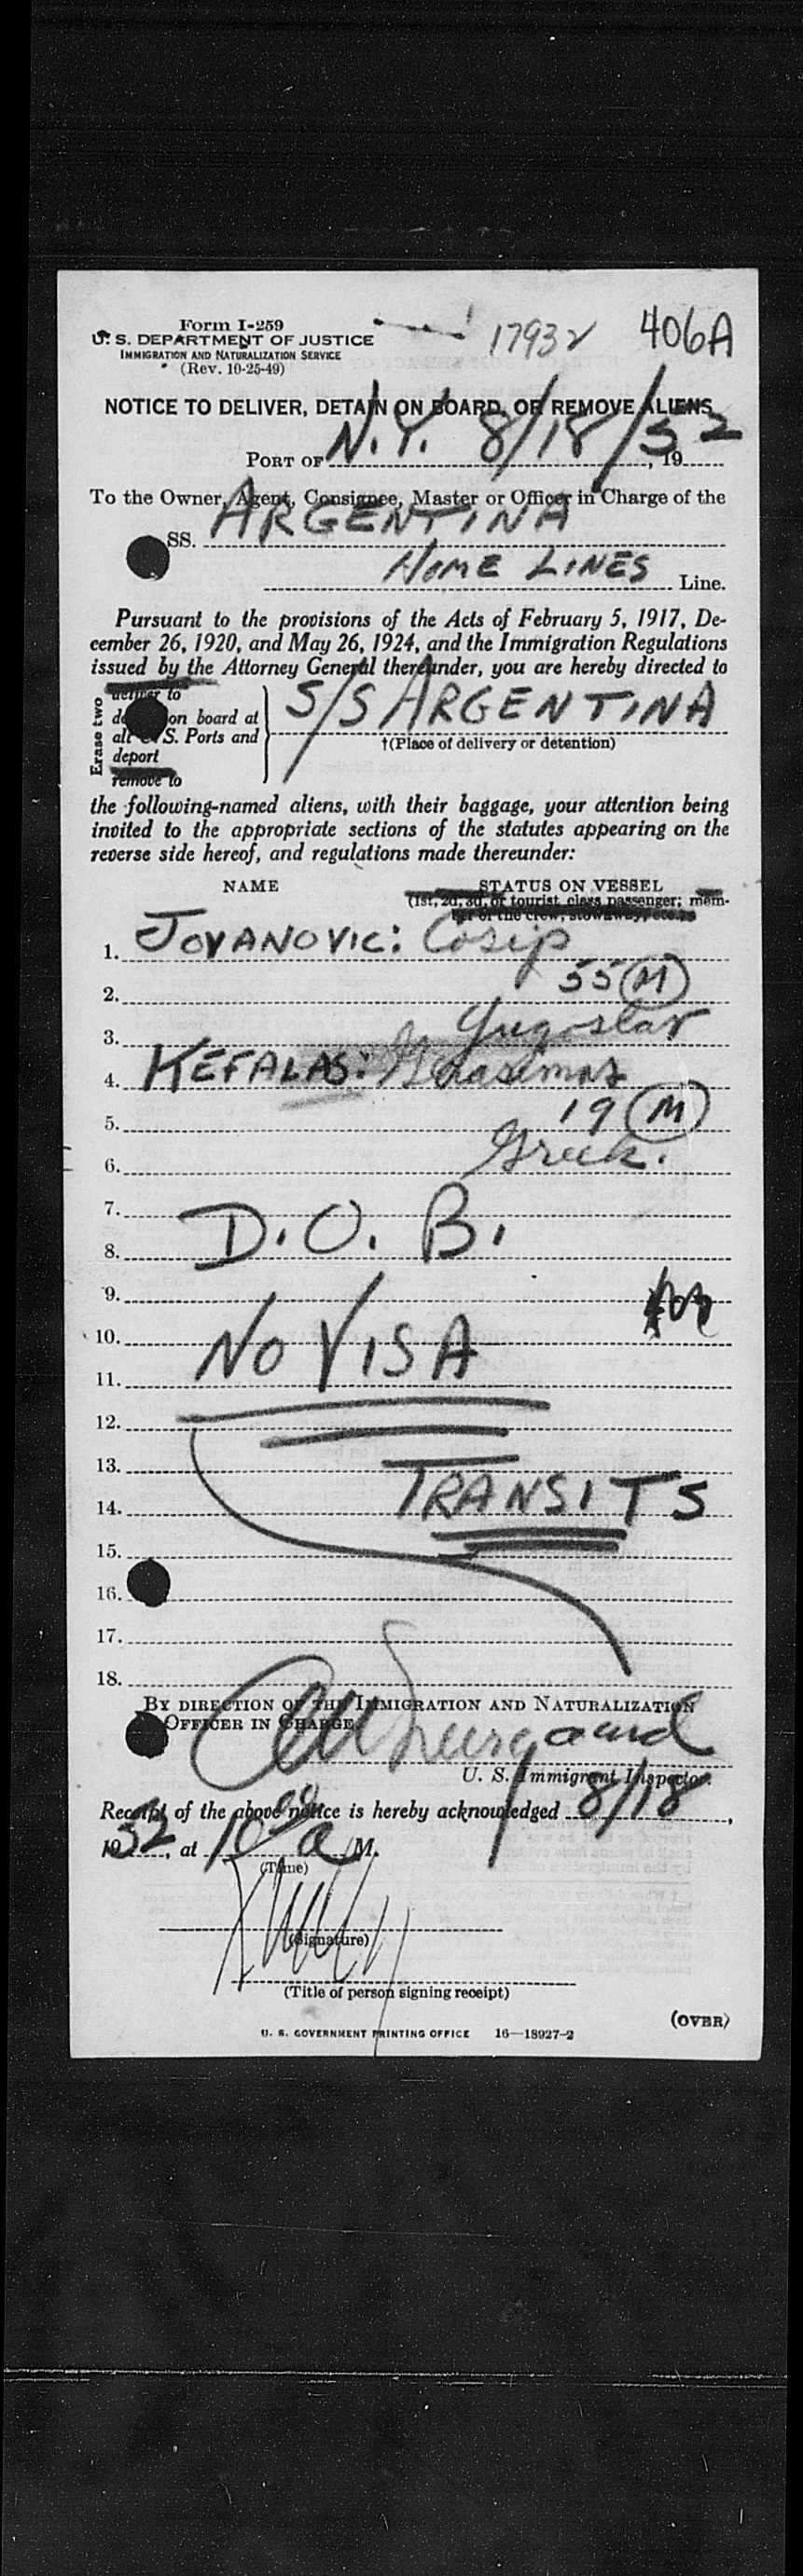 Form I-259
U. S. DEPARTMENT OF JUSTICE
IMMIGRATION AND NATURALIZATION SERVICE
(Rev. 10-25-49)
1793 406A
NOTICE TO DELIVER, DETAIN ON BOARD, OR REMOVE ALIENS
PORT OF N.Y. 8/18/52, 19
To the Owner, Agent, Consignee, Master or Officer in Charge of the
SS. ARGENTINA
HOME LINES Line.
Pursuant to the provisions of the Acts of February 5, 1917, De-
cember 26, 1920, and May 26, 1924, and the Immigration Regulations
issued by the Attorney General thereunder, you are hereby directed to
Erase two
deliver to
on board at
S. Ports and
deport
remove to
S/S ARGENTINA
†(Place of delivery or detention)
the following-named aliens, with their baggage, your attention being
invited to the appropriate sections of the statutes appearing on the
reverse side hereof, and regulations made thereunder:
NAME STATUS ON VESSEL
(1st, 2d, 3d, or tourist class passenger; mem-
ber of the crew, stowaway, etc.)
1. JOVANOVIC: Cosip
2. 55 M
3. Yugoslav
4. KEFALAS: Gerasimos
5. 19 M
6. Greek.
7.
8. D.O.B.
9.
10.
11. NO VISA
12.
13.
14. TRANSITS
15.
16.
17.
18.
BY DIRECTION OF THE IMMIGRATION AND NATURALIZATION
OFFICER IN CHARGE
U. S. Immigrant Inspector.
Receipt of the above notice is hereby acknowledged 8/18,
1952, at 10 00 a M.
(Time)
(Signature)
(Title of person signing receipt)
(OVER)
U. S. GOVERNMENT PRINTING OFFICE 16—18927-2